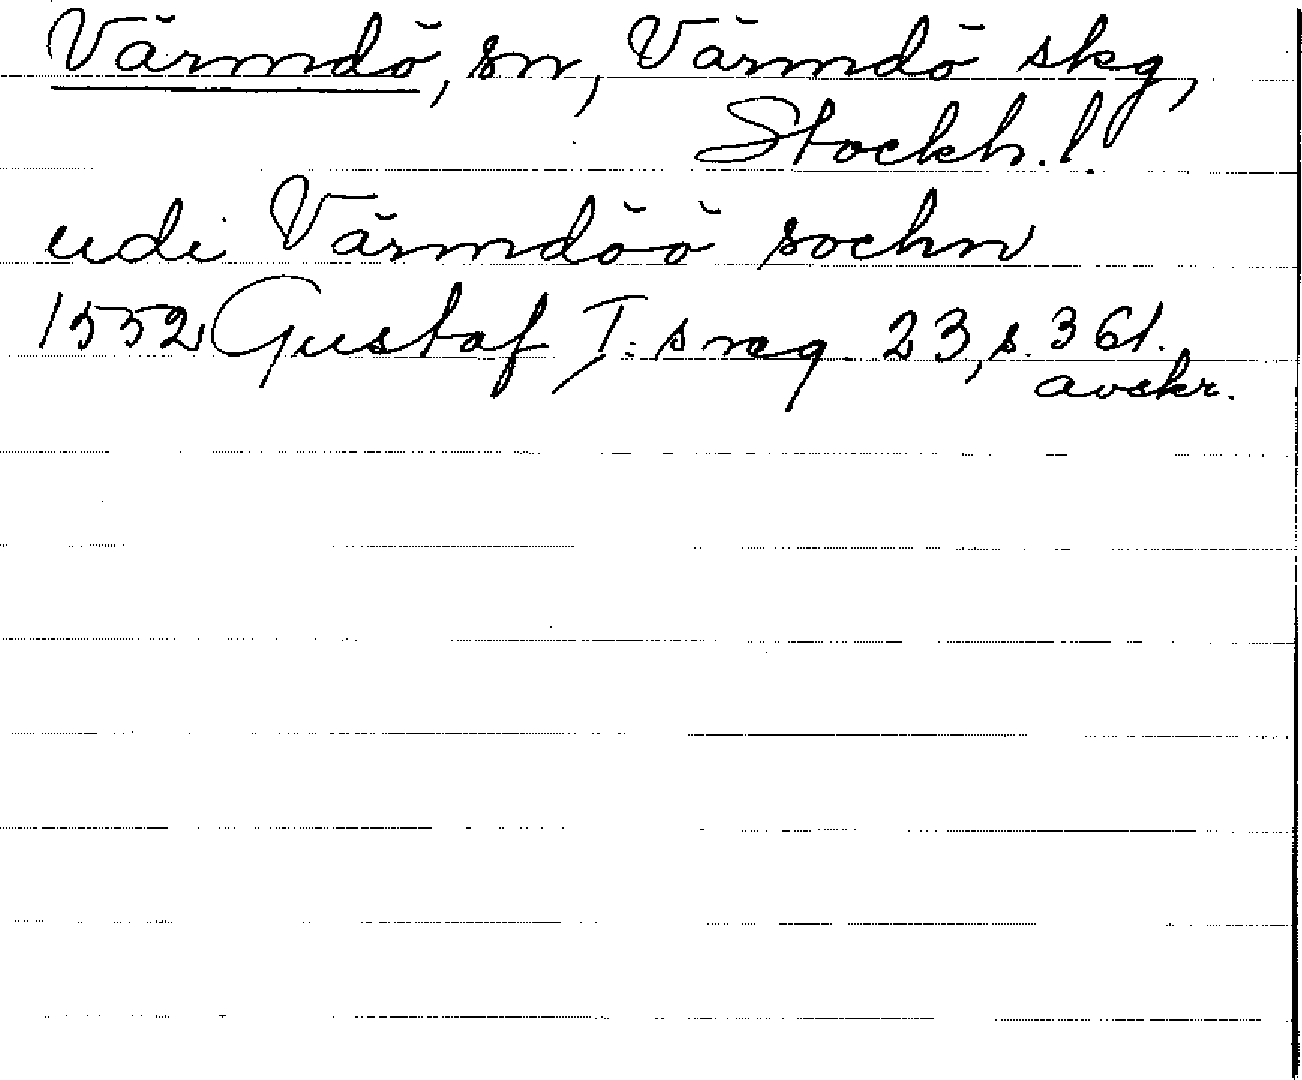 Värmdö, sn, Värmdö skg,
Stockh. l.
udi Värmdöö sochn
1552 Gustaf I:s reg 23, s. 361.
avskr.